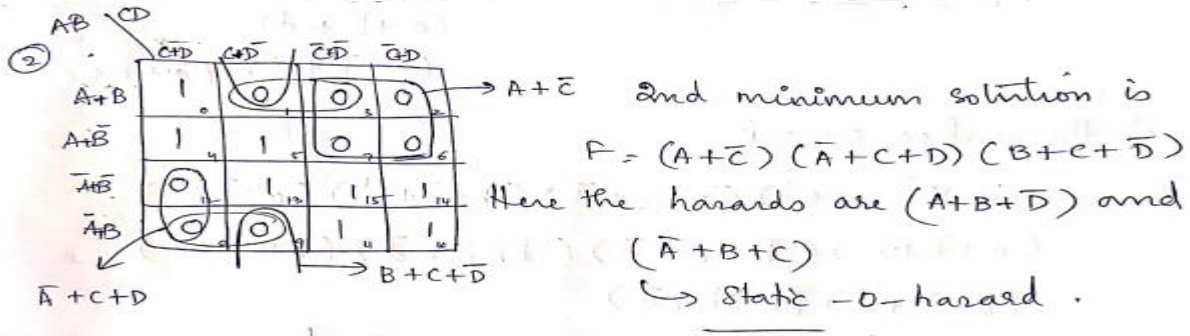 AB \ CD
② C+D C+D̄ C̄+D̄ C̄+D
A+B 1 0 0 0 → A+C̄
0 1 3 2
A+B̄ 1 1 0 0
4 5 7 6
Ā+B̄ 0 1 1 1
12 13 15 14
Ā+B 0 0 1 1
8 9 11 10
Ā+C+D
B+C+D̄
2nd minimum solution is
F = (A+C̄) (Ā+C+D) (B+C+D̄)
Here the hazards are (A+B+D̄) and
(Ā+B+C)
↳ Static -0- hazard.